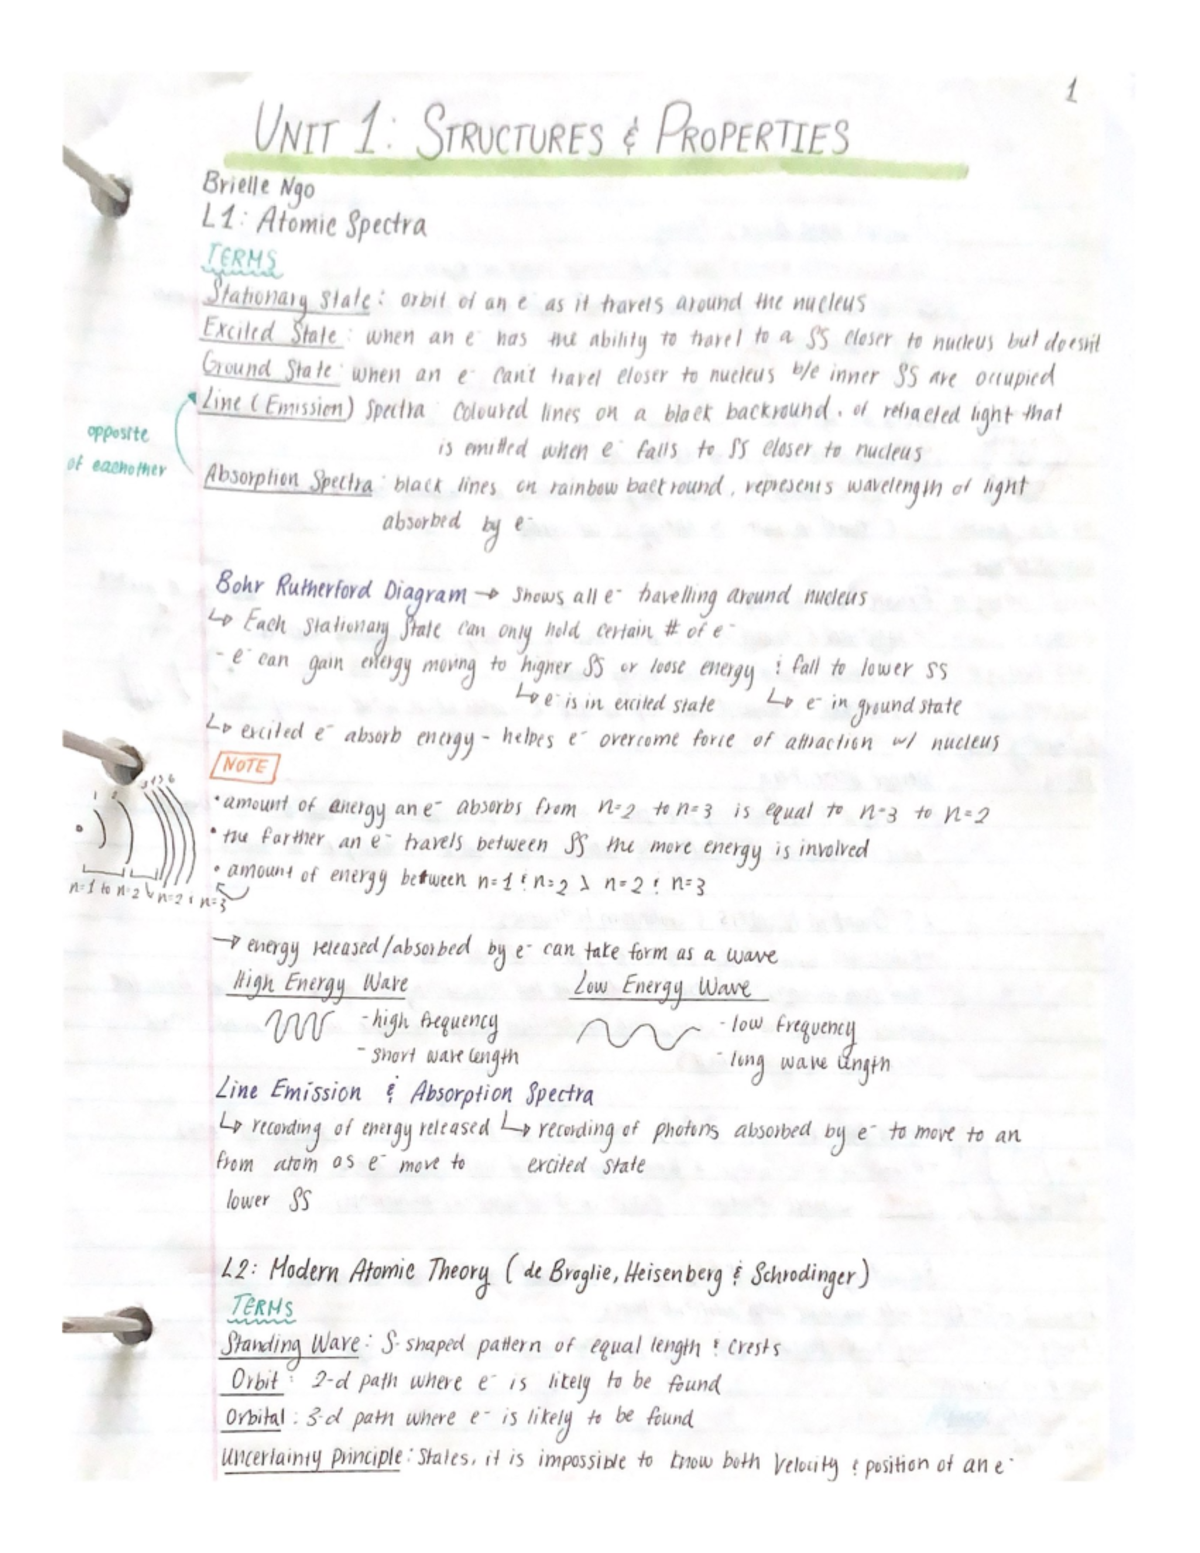 1
UNIT 1: STRUCTURES & PROPERTIES
Brielle Ngo
L1: Atomic Spectra
TERMS
Stationary State: orbit of an e⁻ as it travels around the nucleus
Excited State: when an e⁻ has the ability to travel to a SS closer to nucleus but doesn't
Ground State: when an e⁻ can't travel closer to nucleus b/c inner SS are occupied
Line (Emission) Spectra: Coloured lines on a black backround, of refracted light that
is emitted when e⁻ falls to SS closer to nucleus
opposite
of eachother
Absorption Spectra: black lines on rainbow backround, represents wavelength of light
absorbed by e⁻
Bohr Rutherford Diagram → Shows all e⁻ travelling around nucleus
↳ Each Stationary State can only hold certain # of e⁻
- e⁻ can gain energy moving to higher SS or loose energy & fall to lower SS
↳ e⁻ is in excited state ↳ e⁻ in ground state
↳ excited e⁻ absorb energy - helps e⁻ overcome force of attraction w/ nucleus
NOTE
• amount of energy an e⁻ absorbs from n=2 to n=3 is equal to n=3 to n=2
• the farther an e⁻ travels between SS the more energy is involved
• amount of energy between n=1 & n=2 > n=2 & n=3
1 2 3 4 5 6
n=1 to n=2 > n=2 & n=3
→ energy released/absorbed by e⁻ can take form as a wave
High Energy Wave Low Energy Wave
- high frequency - low frequency
- short wave length - long wave length
Line Emission & Absorption Spectra
↳ recording of energy released ↳ recording of photons absorbed by e⁻ to move to an
from atom as e⁻ move to excited state
lower SS
L2: Modern Atomic Theory (de Broglie, Heisenberg & Schrodinger)
TERMS
Standing Wave: S-shaped pattern of equal length & crests
Orbit: 2-d path where e⁻ is likely to be found
Orbital: 3-d path where e⁻ is likely to be found
Uncertainty Principle: States, it is impossible to know both velocity & position of an e⁻